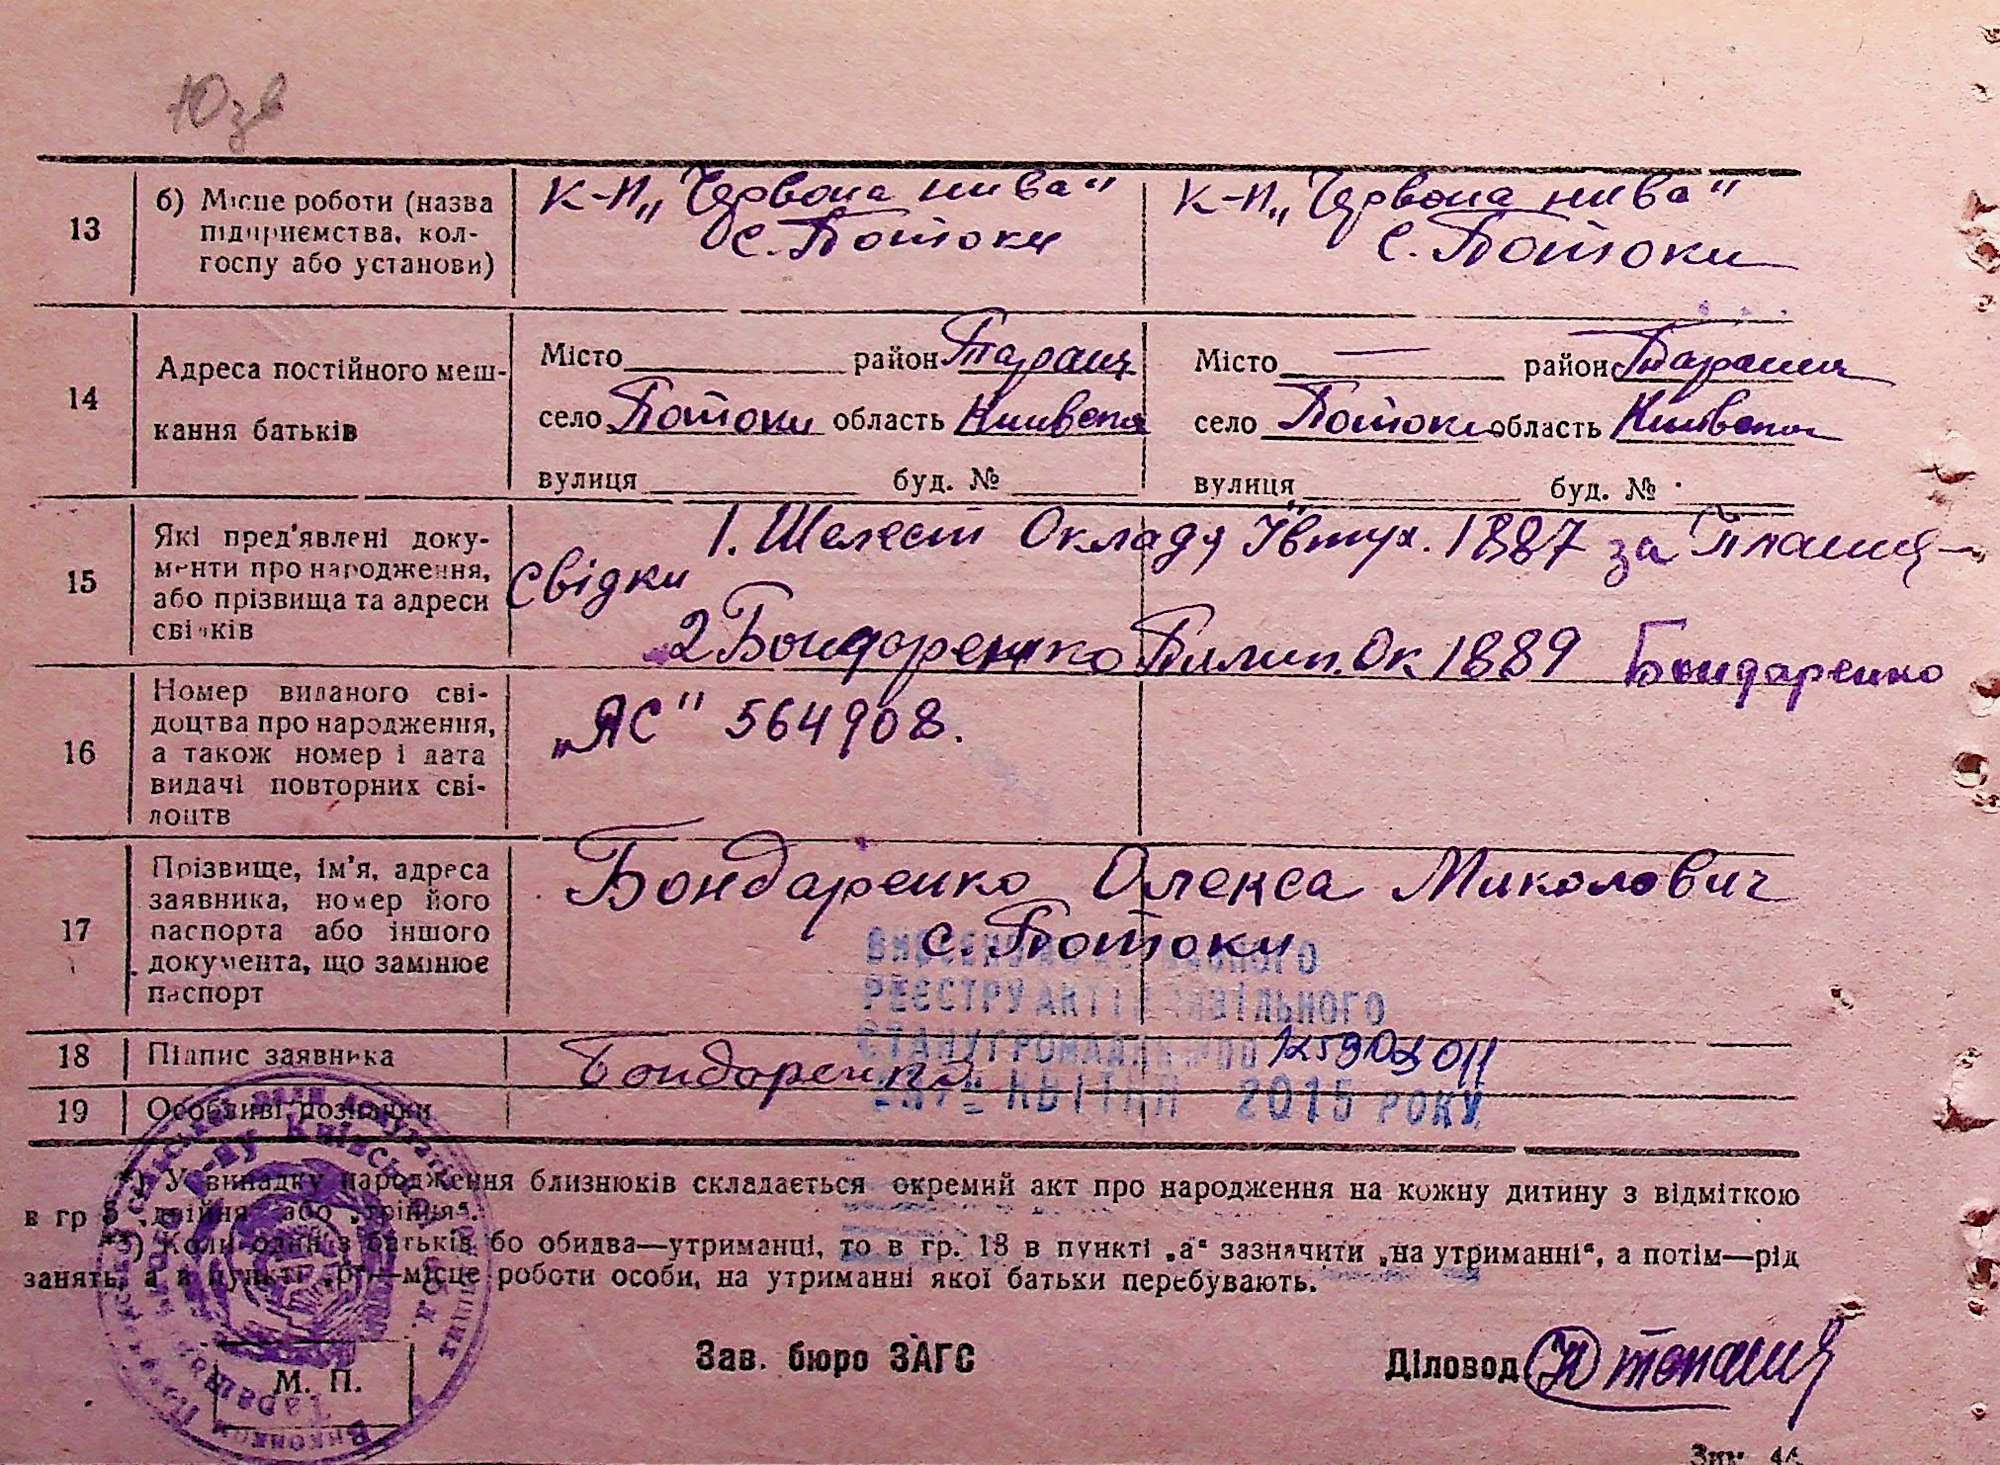 10 зв
13
б) Місце роботи (назва
підприємства, кол-
госпу або установи)
К-п „Червона нива"
с. Потоки
К-п „Червона нива"
с. Потоки
14
Адреса постійного меш-
кання батьків
Місто район Тараща
село Потоки область Київська
вулиця буд. №
Місто — район Тараща
село Потоки область Київська
вулиця буд. №
15
Які пред'явлені доку-
менти про народження,
або прізвища та адреси
свідків
свідки
1. Шелест Оклад Явтух. 1887 за
2 Бондаренко Пилип. Ок 1889 Бондаренко
16
Номер виданого сві-
доцтва про народження,
а також номер і дата
видачі повторних сві-
доцтв
„ЯС" 564908.
17
Прізвище, ім'я, адреса
заявника, номер його
паспорта або іншого
документа, що замінює
паспорт
Бондаренко Олекса Миколович
с. Потоки
18
Підпис заявника
Бондаренко
19
Особливі познаки
ВНЕСЕНО ДО
РЕЄСТРУ АКТІВ ЦИВІЛЬНОГО
СТАНУ ГРОМАДЯН
КВІТНЯ 2015 РОКУ
*) У випадку народження близнюків складається окремий акт про народження на кожну дитину з відміткою
в гр 5 „двійня" або „трійця".
**) Коли один з батьків бо обидва—утриманці, то в гр. 13 в пункті „а" зазначити „на утриманні", а потім—рід
занять, а в пункті „б"—місце роботи особи, на утриманні якої батьки перебувають.
М. П.
Зав. бюро ЗАГС
Діловод